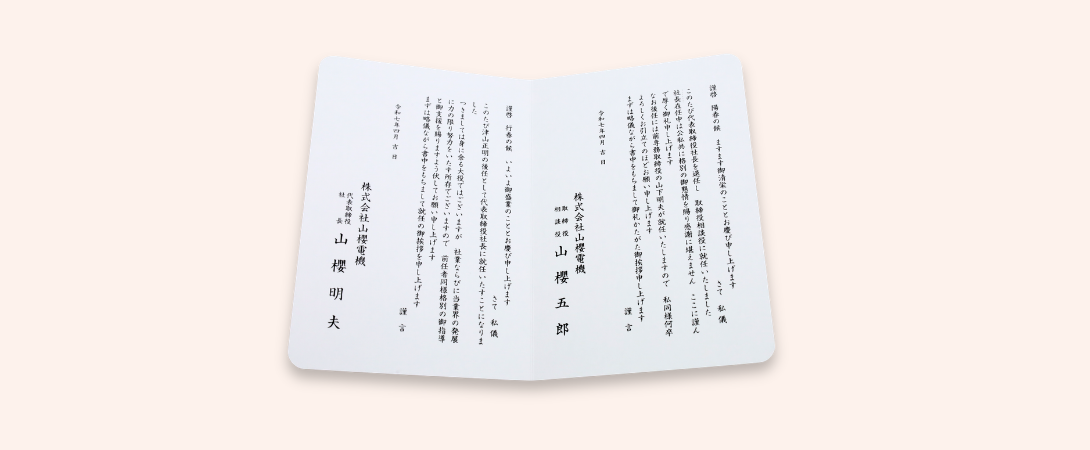 謹啓 陽春の候 ますます御清栄のこととお慶び申し上げます
さて 私儀
このたび代表取締役社長を退任し 取締役相談役に就任いたしました
社長在任中は公私共に格別の御懇情を賜り感謝に堪えません ここに謹ん
で厚く御礼申し上げます
なお後任には前専務取締役の山下明夫が就任いたしますので 私同様何卒
よろしくお引立てのほどお願い申し上げます
まずは略儀ながら書中をもちまして御礼かたがた御挨拶申し上げます
謹言
令和七年四月 吉日
株式会社山櫻電機
取締役
相談役
山櫻五郎
謹啓 行春の候 いよいよ御盛業のこととお慶び申し上げます
さて 私儀
このたび津山正明の後任として代表取締役社長に就任いたすことになりま
した
つきましては身に余る大役ではございますが 社業ならびに当業界の発展
に力の限り努力をいたす所存でございますので 前任者同様格別の御指導
と御支援を賜りますよう伏してお願い申し上げます
まずは略儀ながら書中をもちまして就任の御挨拶を申し上げます
謹言
令和七年四月 吉日
株式会社山櫻電機
代表取締役
社長
山櫻明夫